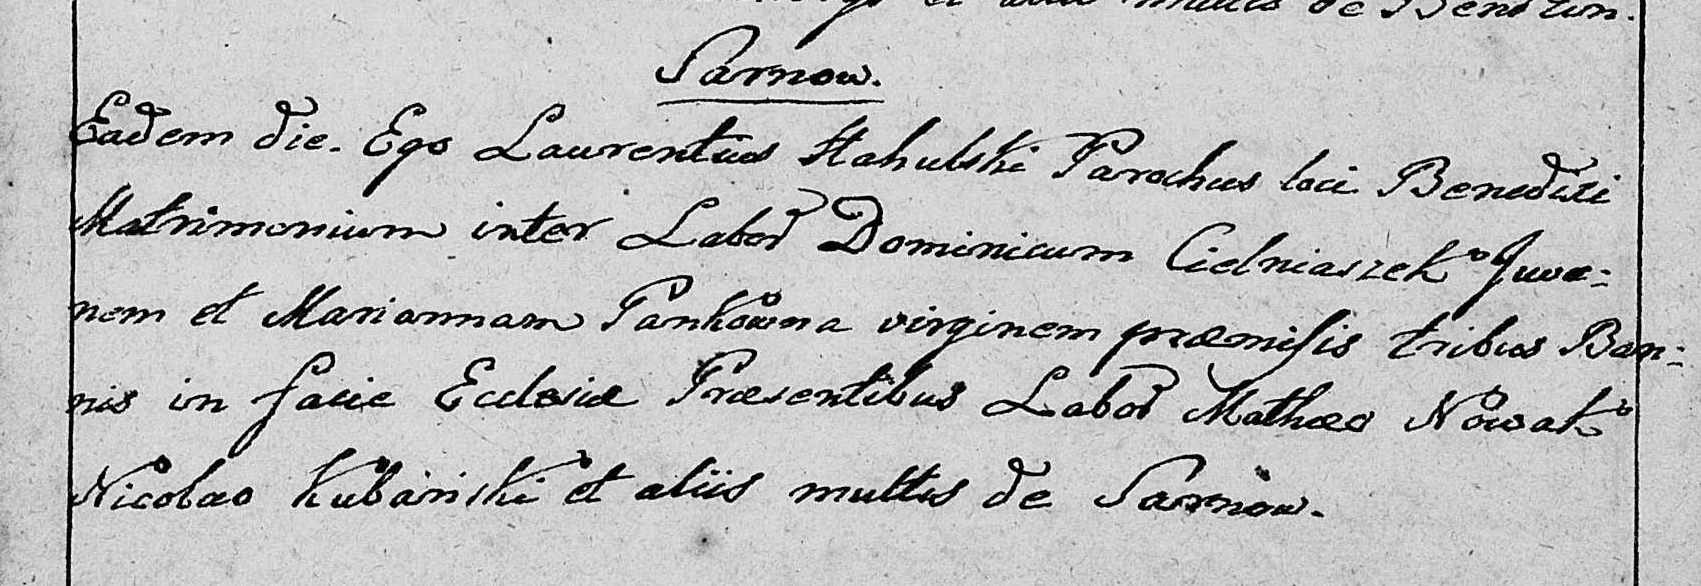 et aliis multis de Bendzin.
Sarnow.
Eadem die. Ego Laurentius Stahulski Parochus loci Benedixi
Matrimonium inter Labor Dominicum Cielniaszek Juve=
nem et Mariannam Pankowna virginem præmisis tribus Ban=
nis in facie Ecclesiæ Præsentibus Labor Mathæo Nowak
Nicolao Kubański et aliis multis de Sarnow.